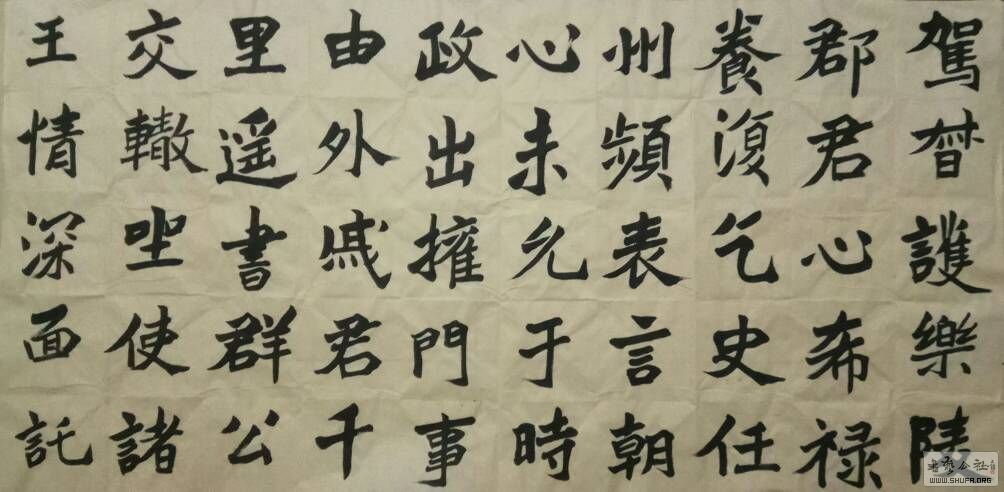 駕督護樂陵
郡君心希祿
養復乞史任
州頻表言朝
心未允于時
政出擁門事
由外戚君千
里遥書群公
交轍坐使諸
王情深面託
公社
WWW.SHUFA.ORG